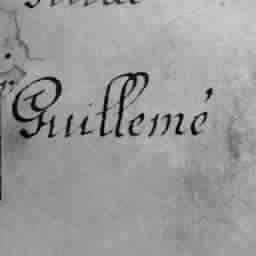 Guillemé